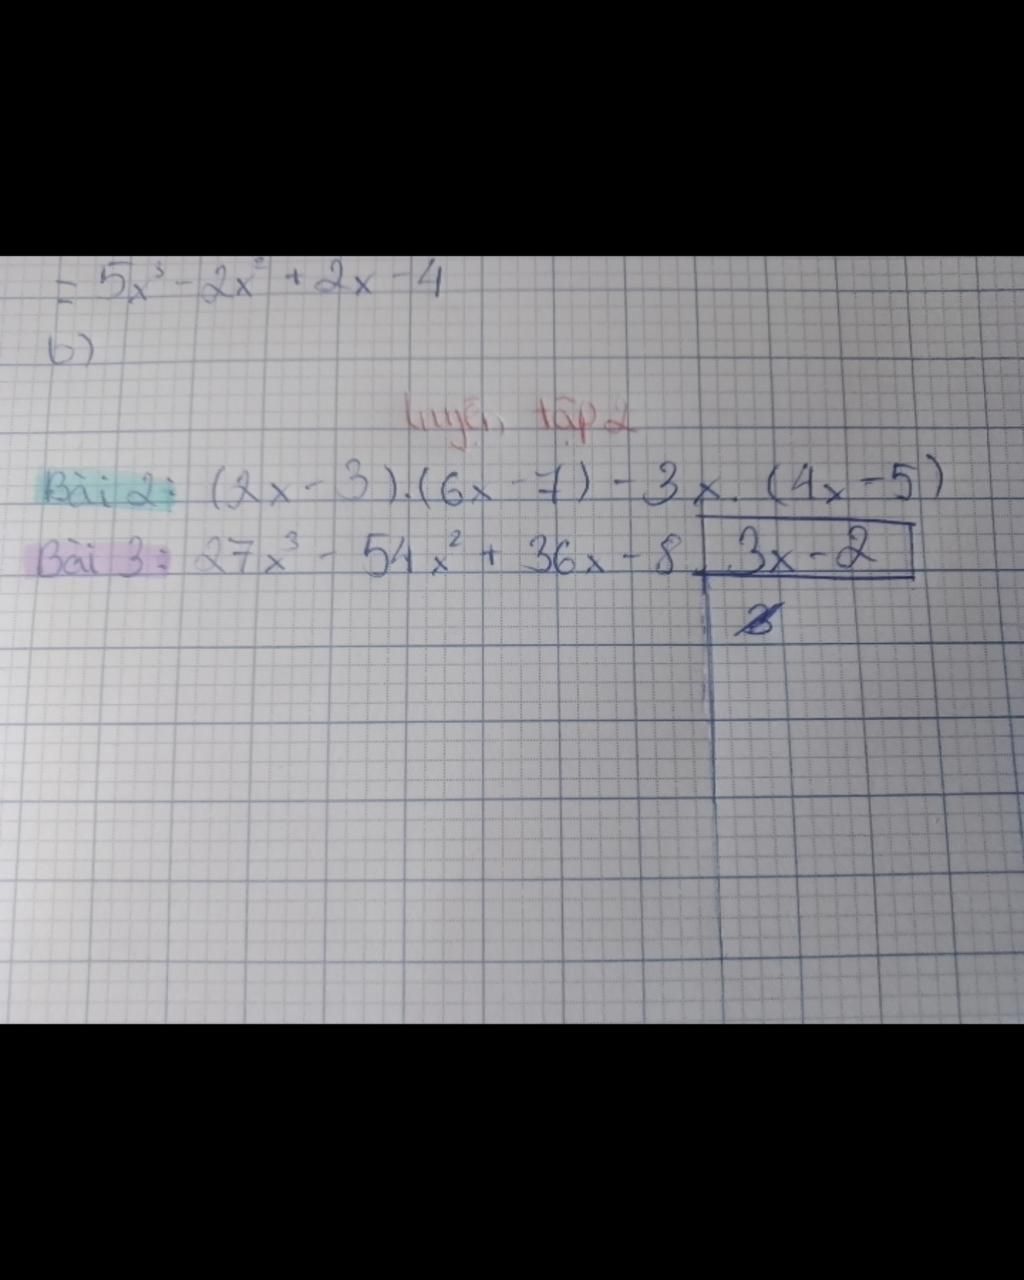 = 5x³ - 2x² + 2x - 4
b)
Luyện tập 2
Bài 2: (2x - 3).(6x - 7) - 3x. (4x - 5)
Bài 3: 27x³ - 54x² + 36x - 8 3x - 2